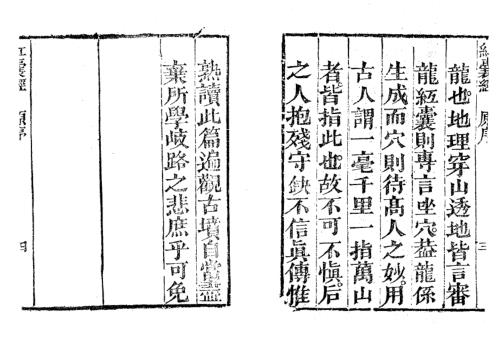 紅囊經 原序 三
龍也地理穿山透地皆言審
龍紅囊則專言坐穴葢龍係
生成而穴則待髙人之妙用
古人謂一毫千里一指萬山
者皆指此也故不可不愼后
之人抱殘守缺不信眞傳惟
熟讀此篇遍觀古墳自當盡
棄所學歧路之悲庶乎可免
紅囊經 原序 四